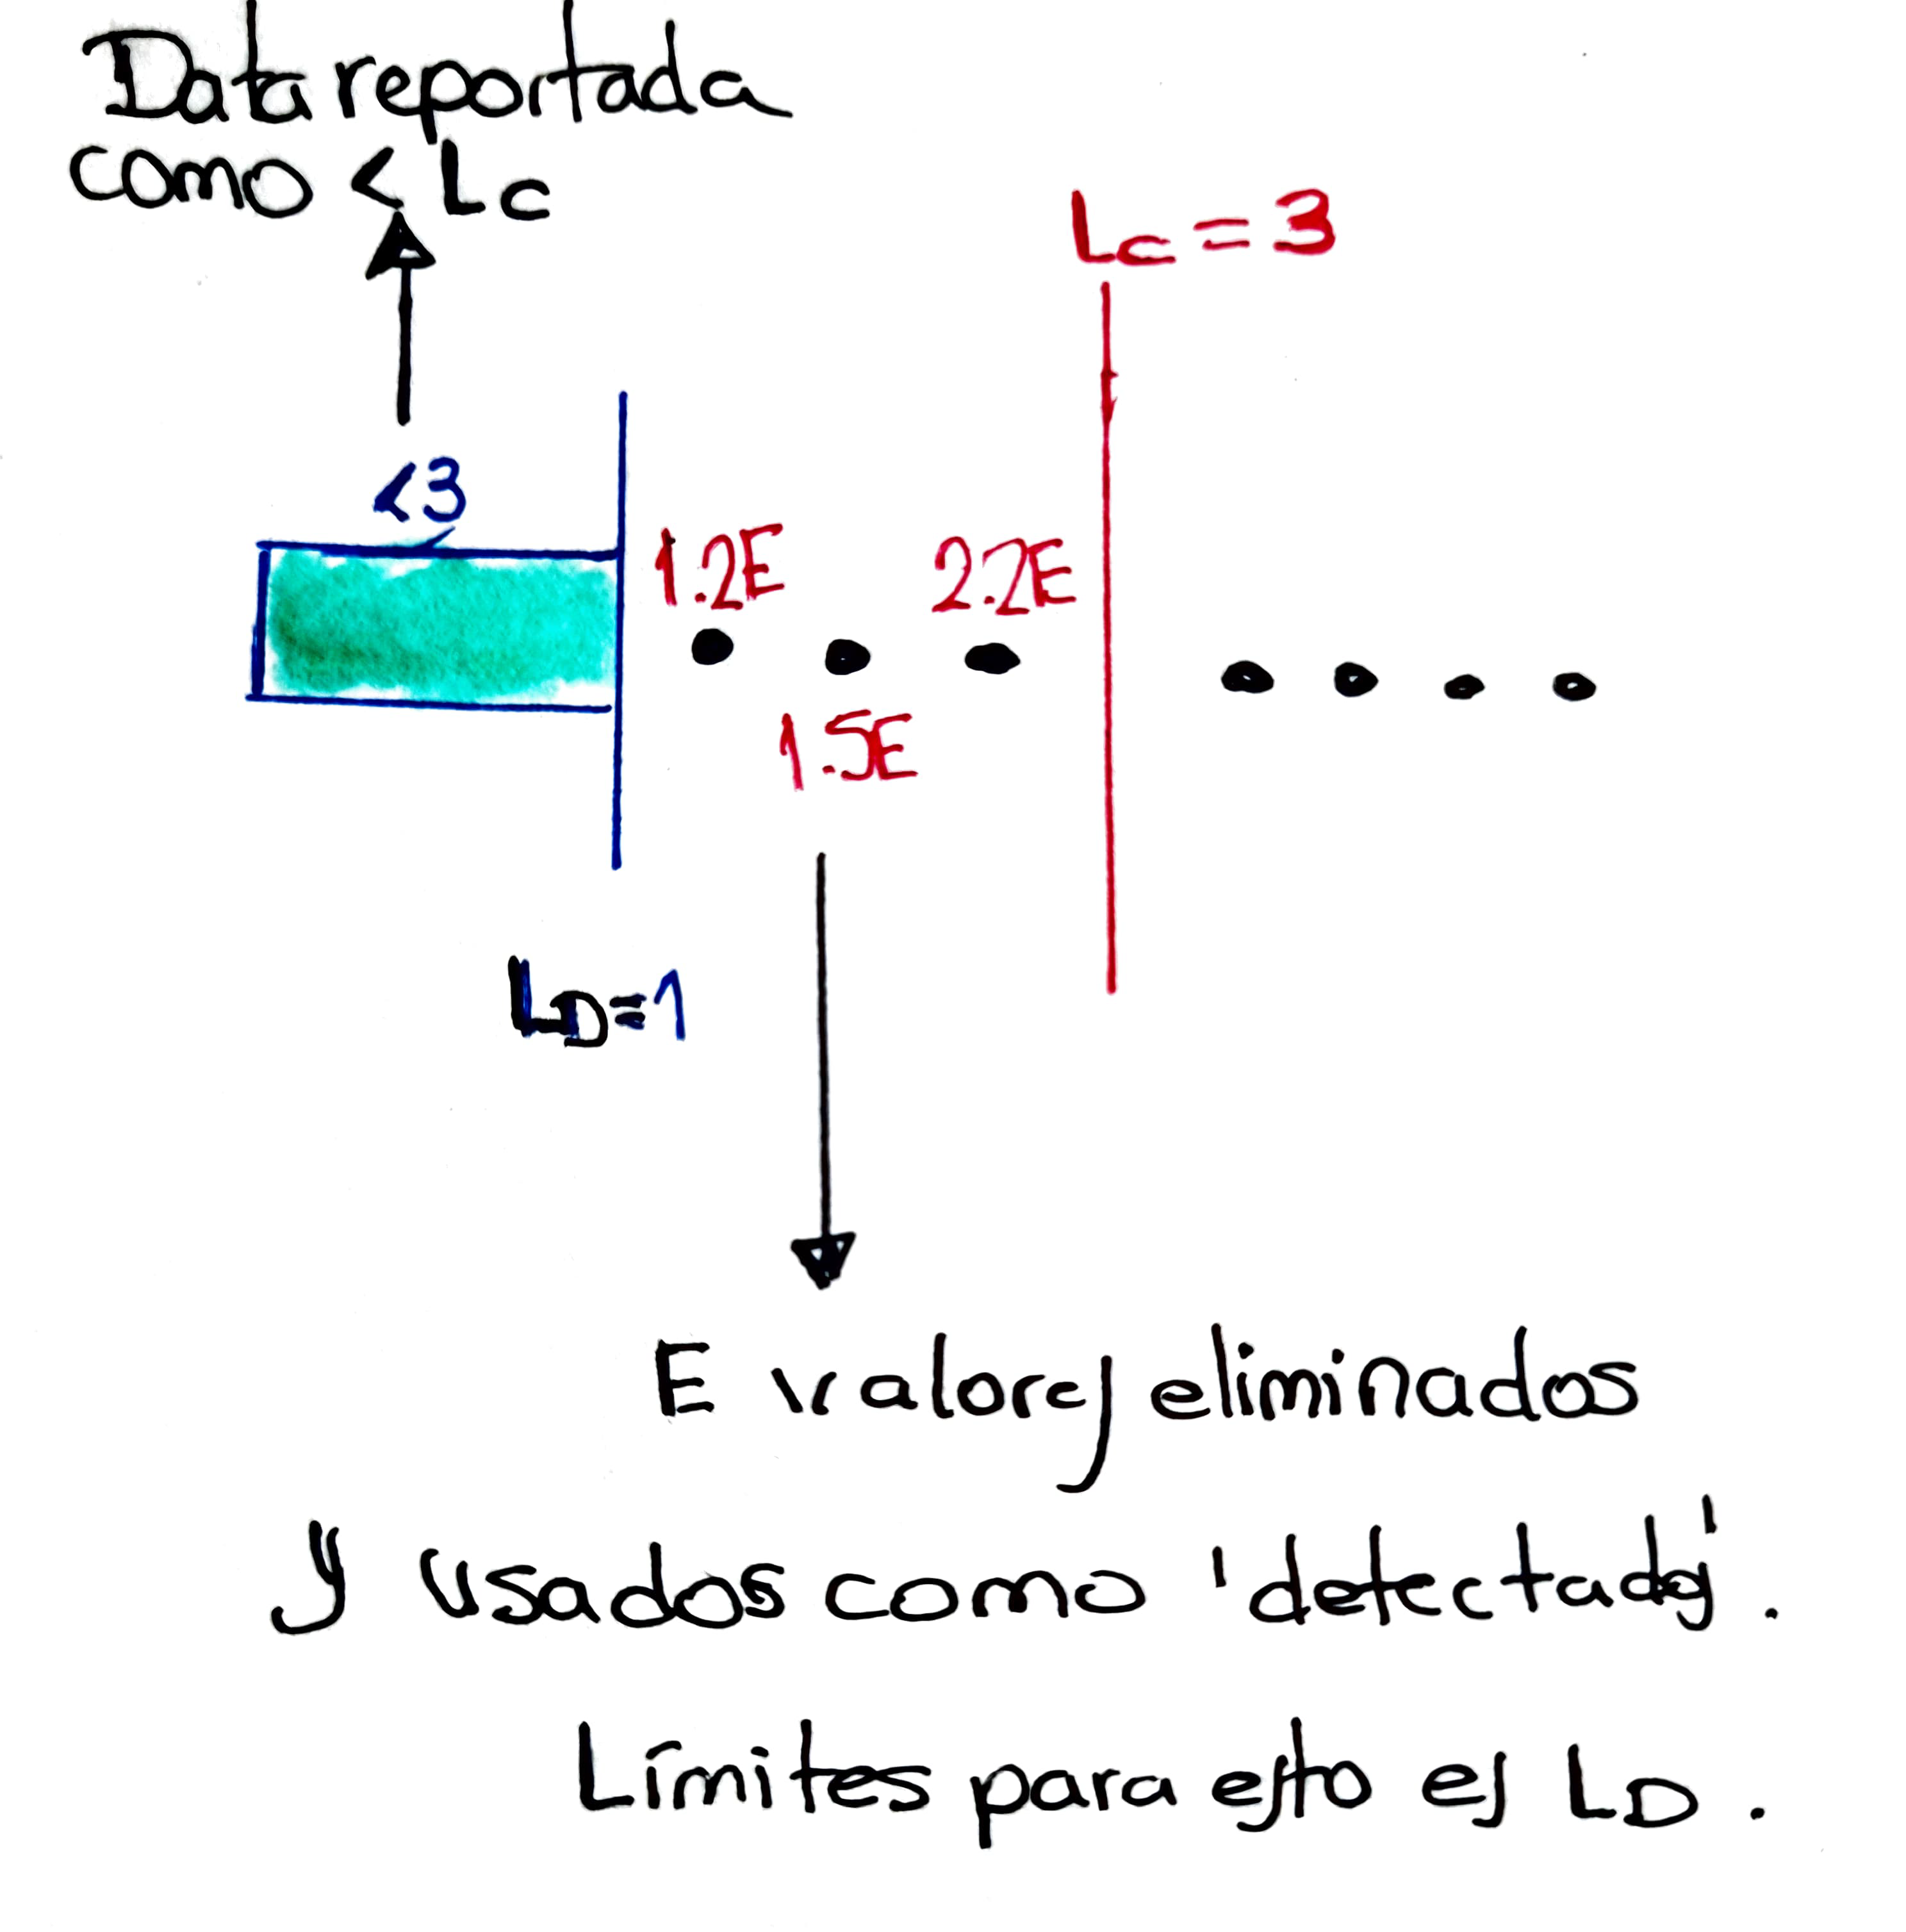 Data reportada
como < Lc
Lc = 3
<3
1.2E
2.2E
1.5E
LD=1
E valores eliminados
y usados como 'detectados'.
Límites para esto es LD.